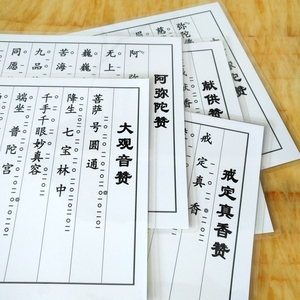 大观音赞
菩萨号圆通
降生七宝林中
千手千眼妙真容
端坐普陀宫
戒定真香赞
戒定真香
阿弥陀赞
阿弥
无上
巍巍
苦海
九品
同愿
献供赞